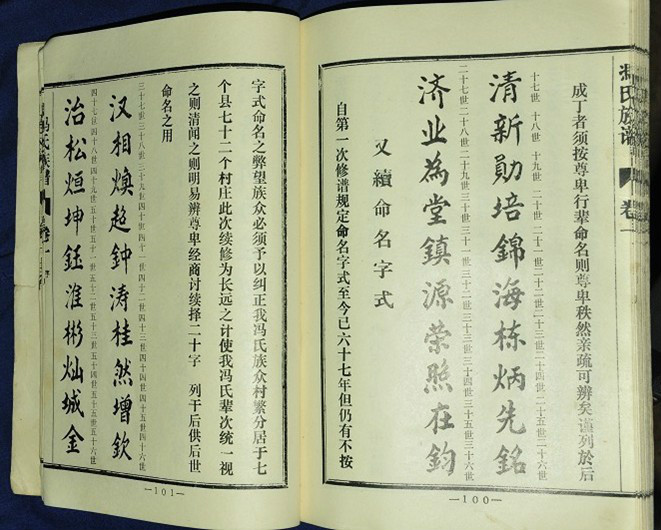 冯氏族谱
卷一
成丁者须按尊卑行辈命名则尊卑秩然亲疏可辨矣谨列於后
十七世 十八世 十九世 二十世 二十一世 二十二世 二十三世 二十四世 二十五世 二十六世
清新勋培錦海栋炳先銘
二十七世 二十八世 二十九世 三十世 三十一世 三十二世 三十三世 三十四世 三十五世 三十六世
济业為堂鎮源荣照在鈞
又續命名字式
自第一次修谱规定命名字式至今已六十七年但仍有不按
—100—
字式命名之弊望族众必须予以纠正我冯氏族众村繁分居于七
个县七十二个村庄此次续修为长远之计使我冯氏辈次统一视
之则清闻之则明易辨尊卑经商讨续择二十字 列于后供后世
命名之用
三十七世 三十八世 三十九世 四十世 四十一世 四十二世 四十三世 四十四世 四十五世 四十六世
汉相焕起鈡涛桂然增欽
四十七世 四十八世 四十九世 五十世 五十一世 五十二世 五十三世 五十四世 五十五世 五十六世
治松烜坤鈺淮彬灿城金
—101—
冯氏族谱